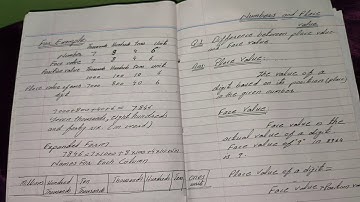 For Example
Thousands Hundred Tens Unit
Number 7 8 4 6
Face value 7 8 4 6
Position value 1000 100 10 1
Place value of each 7000 800 40 6
digit
7000+800+40+6 = 7846
Seven thousands, eight hundreds
and forty six (in words)
Expanded Form
Names For Each Column
Millions Hundred Ten Thousands Hundreds Tens Ones
Thousands Thousands unit
Numbers and Place
value
Q1 Difference between place value
and face value
Ans: Place Value:
The value of a
digit based on its position (place)
in the given number
Face Value
Face value is the
actual value of a digit
Face value of "9" in
is 9
Place value of a digit =
Face value